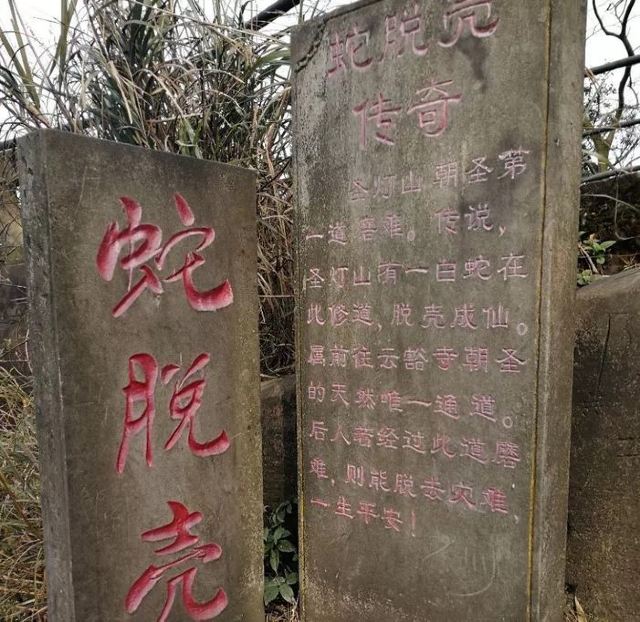 蛇脱壳
蛇脱壳
传奇
圣灯山朝圣第
一道磨难。传说，
圣灯山有一白蛇在
此修道，脱壳成仙。
属前往云豁寺朝圣
的天然唯一通道。
后人若经过此道磨
难，则能脱去灾难，
一生平安！